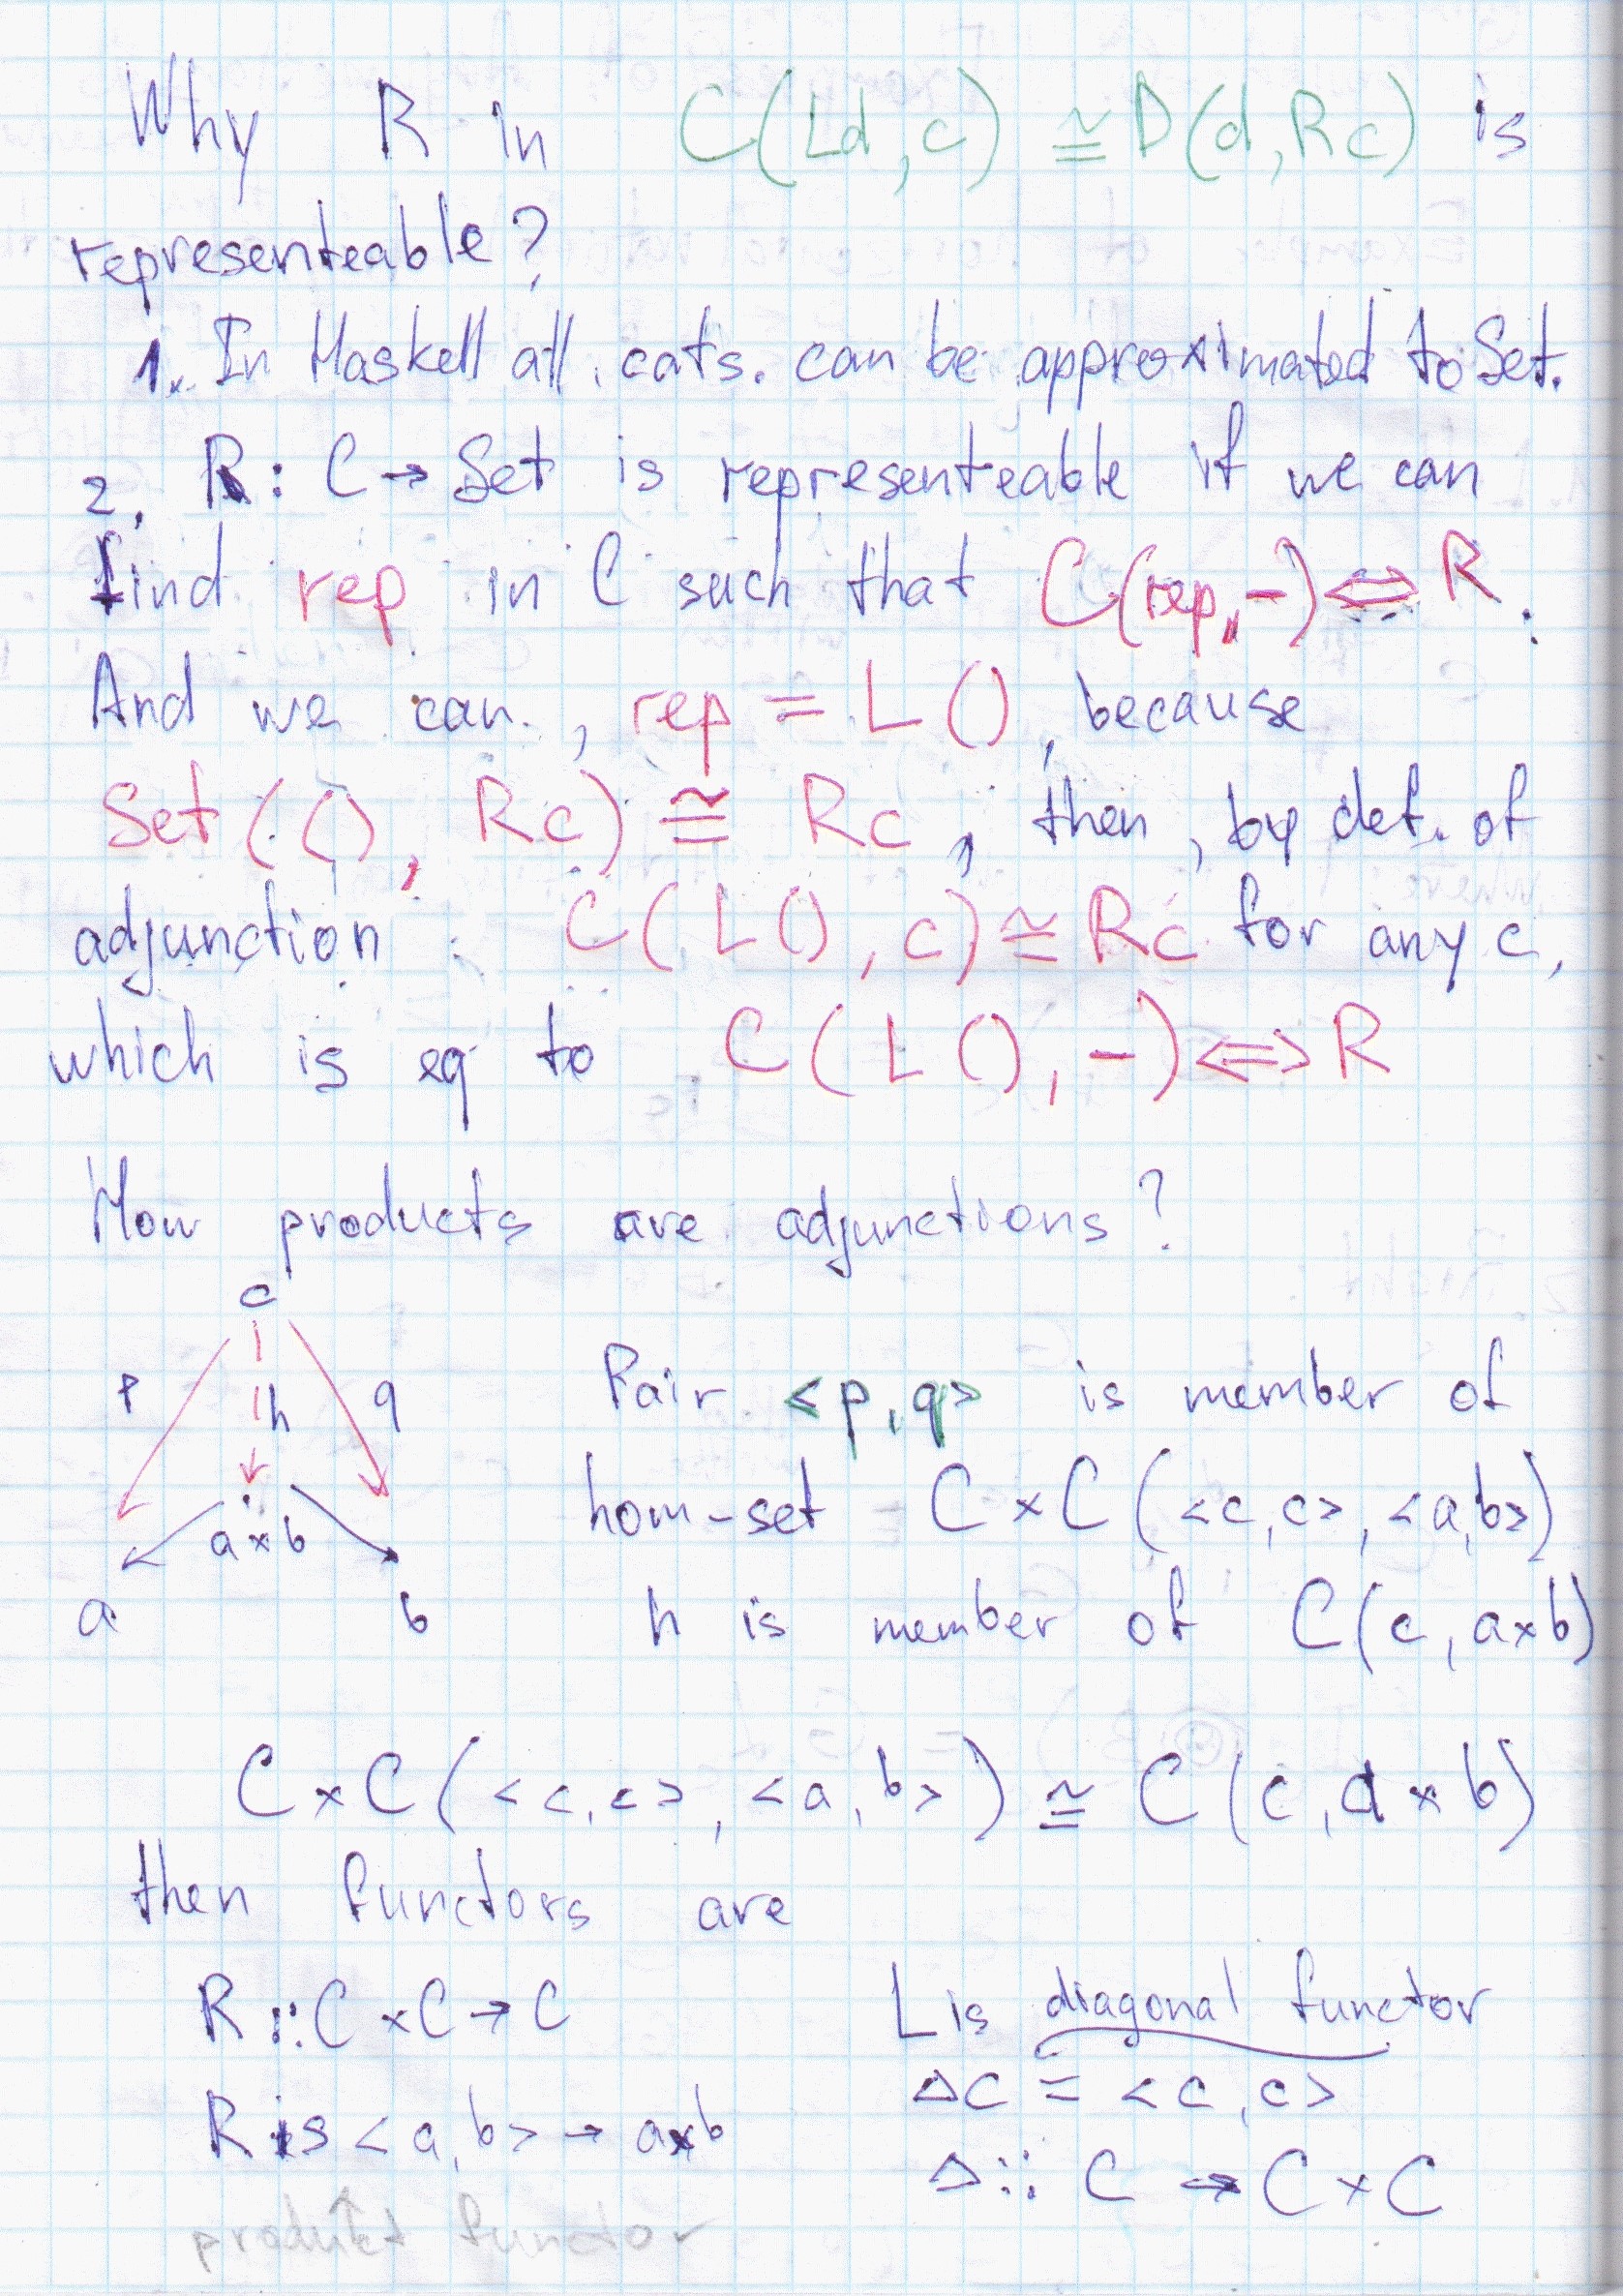 Why R in C(Ld, c) ≅ D(d, Rc) is
representeable?
1. In Haskell all cats. can be approximated to Set.
2. R : C → Set is representeable if we can
find rep in C such that C(rep, -) ⇔ R.
And we can, rep = L(), because
Set ((), Rc) ≅ Rc, then, by def. of
adjunction: C(L(), c) ≅ Rc for any c,
which is eq to C(L(), -) ⇔ R
How products are adjunctions?
c
p h q
a×b
a b
Pair <p, q> is member of
hom-set C×C(<c, c>, <a, b>)
h is member of C(c, a×b)
C×C(<c, c>, <a, b>) ≅ C(c, a×b)
then functors are
R :: C×C → C
R is <a, b> → a×b
product functor
L is diagonal functor
Δc = <c, c>
Δ :: C → C×C